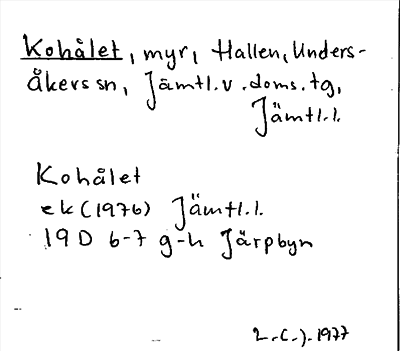 Kohålet, myr, Hallen, Unders-
åkers sn, Jämtl. v. doms. tg,
Jämtl. l.
Kohålet
ek (1976) Jämtl. l.
19D 6-7 g-h Järpbyn
1977